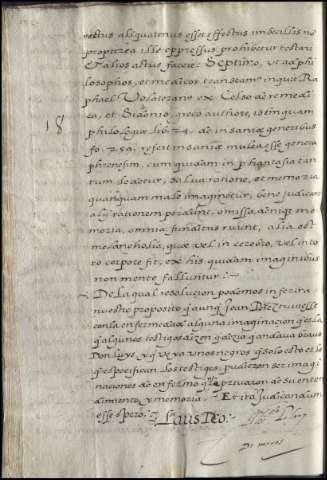 aliquatenus esset effectus imbecillis no
propterea ille oppressus prohibetur testari
et alios actus facere. Septimo, ut a phi
losophos, et medicos transeam inquit Ra
phael Volaterano ex Celso de re medi
ca, et auctore,
philologiæ lib. 24. de insaniæ generibus
fo. 250. refert insaniæ multa esse genera
phrenesim, cum quidam in phantasia tan
tum salva ratione, et memoria
quamquam male imaginetur, bene judicant
alij rationem perdunt, omissa denique me
moria, omnia funditus ruunt, alia est
melancholia, quæ vel in cerebro, vel in to
to corpore fit, ex his quidam imaginibus
non mente falluntur.
18
De la qual resolucion podemos inferir a
nuestro proposito q̃ aunq̃ Joan Perez tuviesse
con la enfermedad alguna imaginacion q̃ es la
q̃ algunos testigos dizen
Don Luys, y q̃ veya unos negros q̃ solo esto es lo
q̃ especifican los testigos, pudieron ser imagi
naciones de enfermo q̃ no privaron de su enten
dimiento, y memoria. Et ita judicandum
esse spero.
Laus Deo.